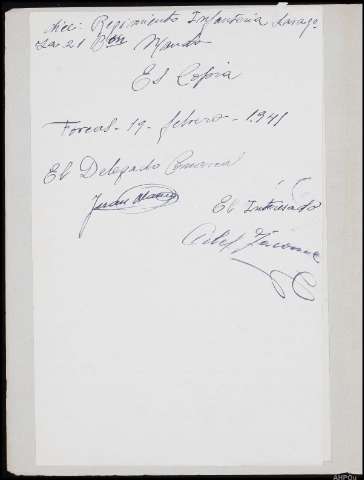 Dice: Regimiento Infanteria Zarago
za 21 Bon Mando
Es Copia
Forcas - 19 - febrero - 1941
El Delegado Comarcal
Juan
El Interesado
AHPOu